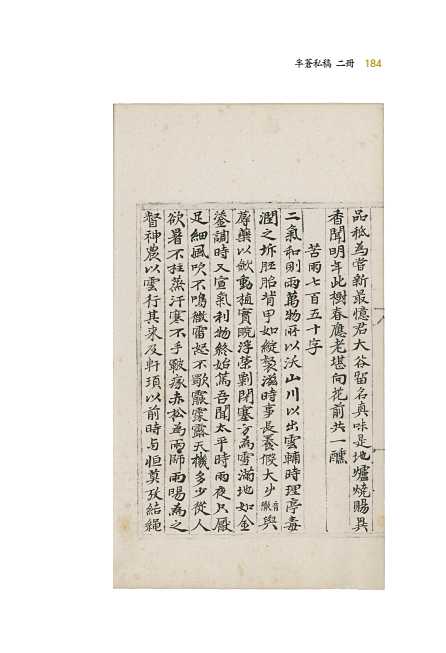 半蒼私稿 二冊 184
品秪為嘗新最憶君大谷留名真味是地爐燒賜異
香聞明年此樹春應老堪向花前共一醺
苦雨七百五十字
二氣和則雨萬物所以沃山川以出雲輔時理亭毒
潤之坼胚胎背甲如綻縠滋時事長養假大少
蓐藥以歛動植實晥浮榮劉閉塞為雪滿地如金
鎣調時又宣氣利物終始篤吾聞太平時雨夜只厭
足細風吹不鳴微雷起不歇靉霂露天機多少從人
欲暑不拄蒸汗寒不手皸瘃赤松為雨師雨暘為之
督神農以雲行其來及軒頊以前時与恒莫攷結繩